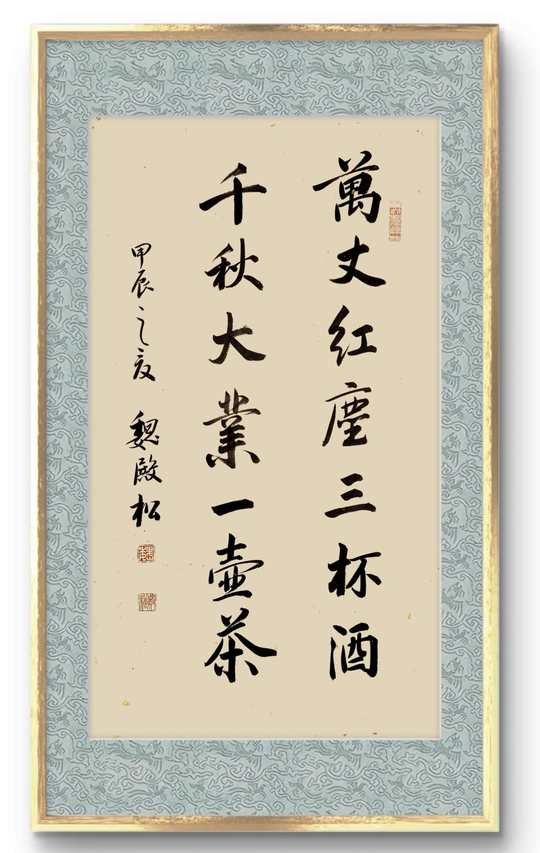 萬丈红塵三杯酒
千秋大業一壶茶
甲辰之夏 魏殿松